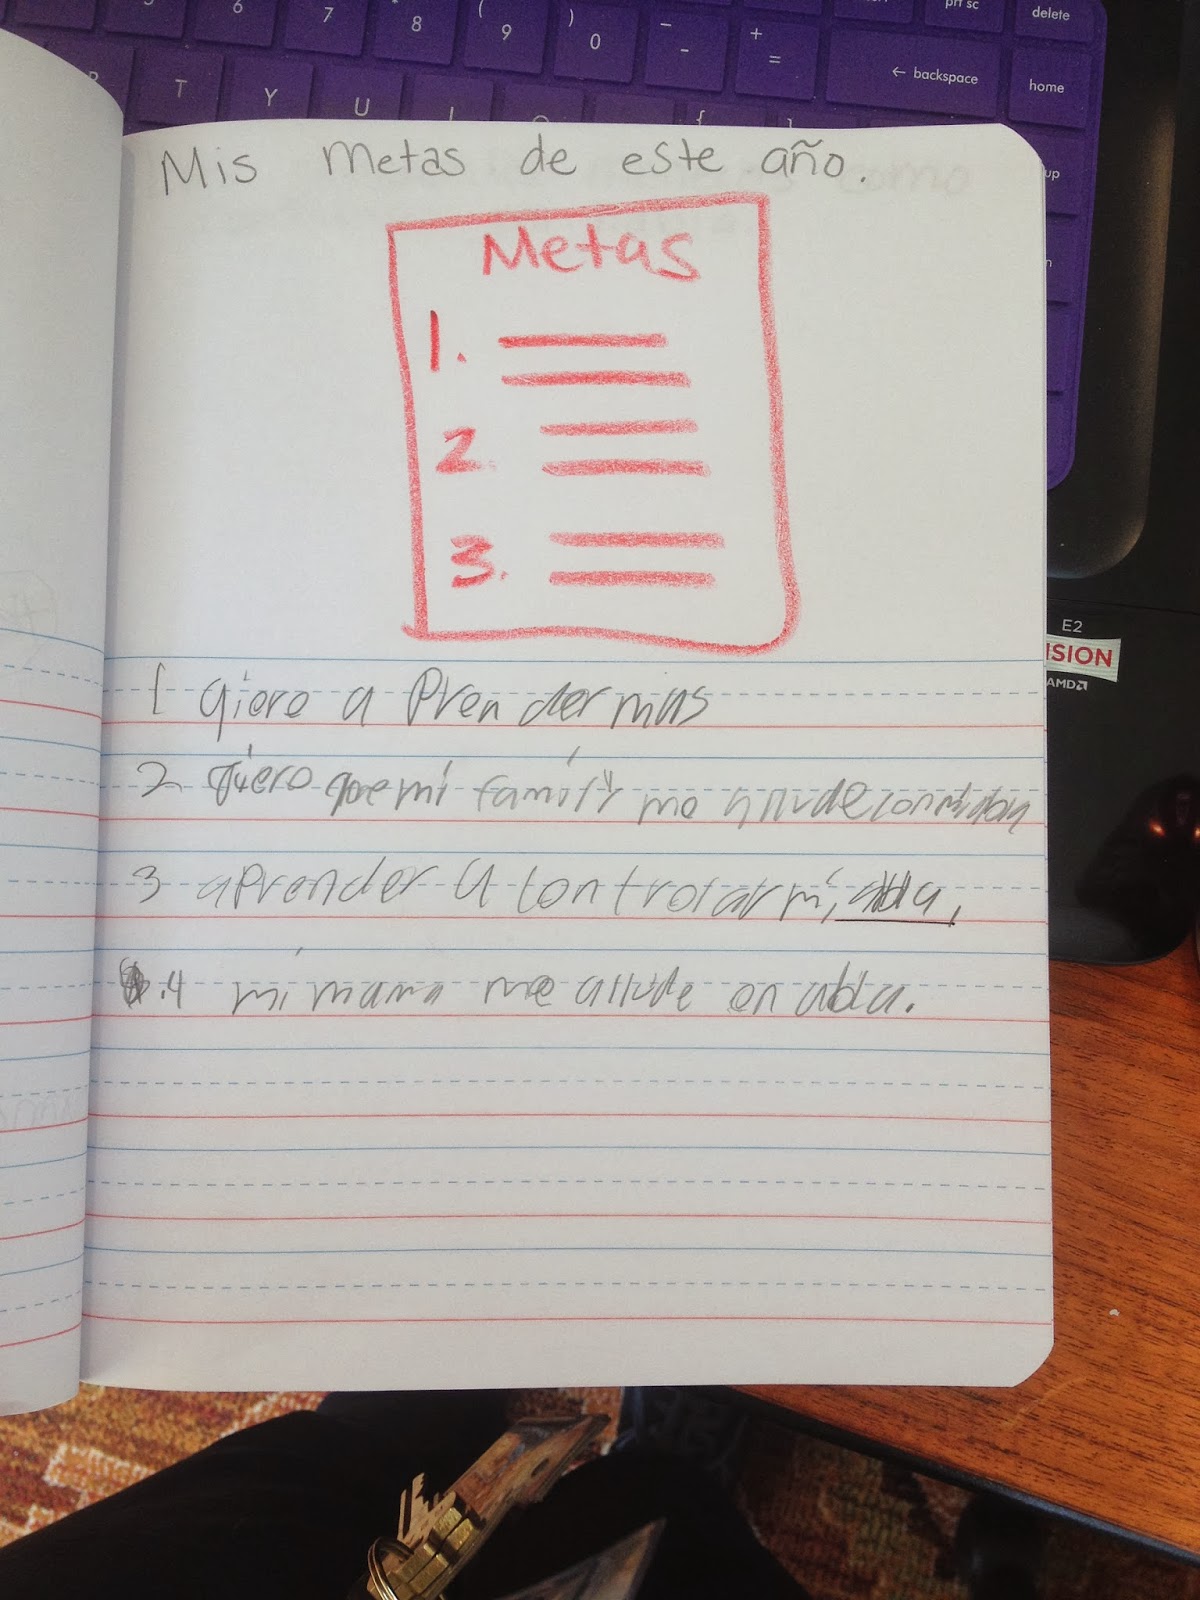 5 6 7 * 8 ( 9 ) 0 _ - + = ← backspace prt sc delete
T Y U I home
up
Mis metas de este año.
Metas
1.
2.
3.
E2
ISION
AMD
1 qiero a Prender mas
2 quiero que mi familiy me allude con mi abla
3 aprender a controlar mi, abla,
.4 mi mama me allude en abla.